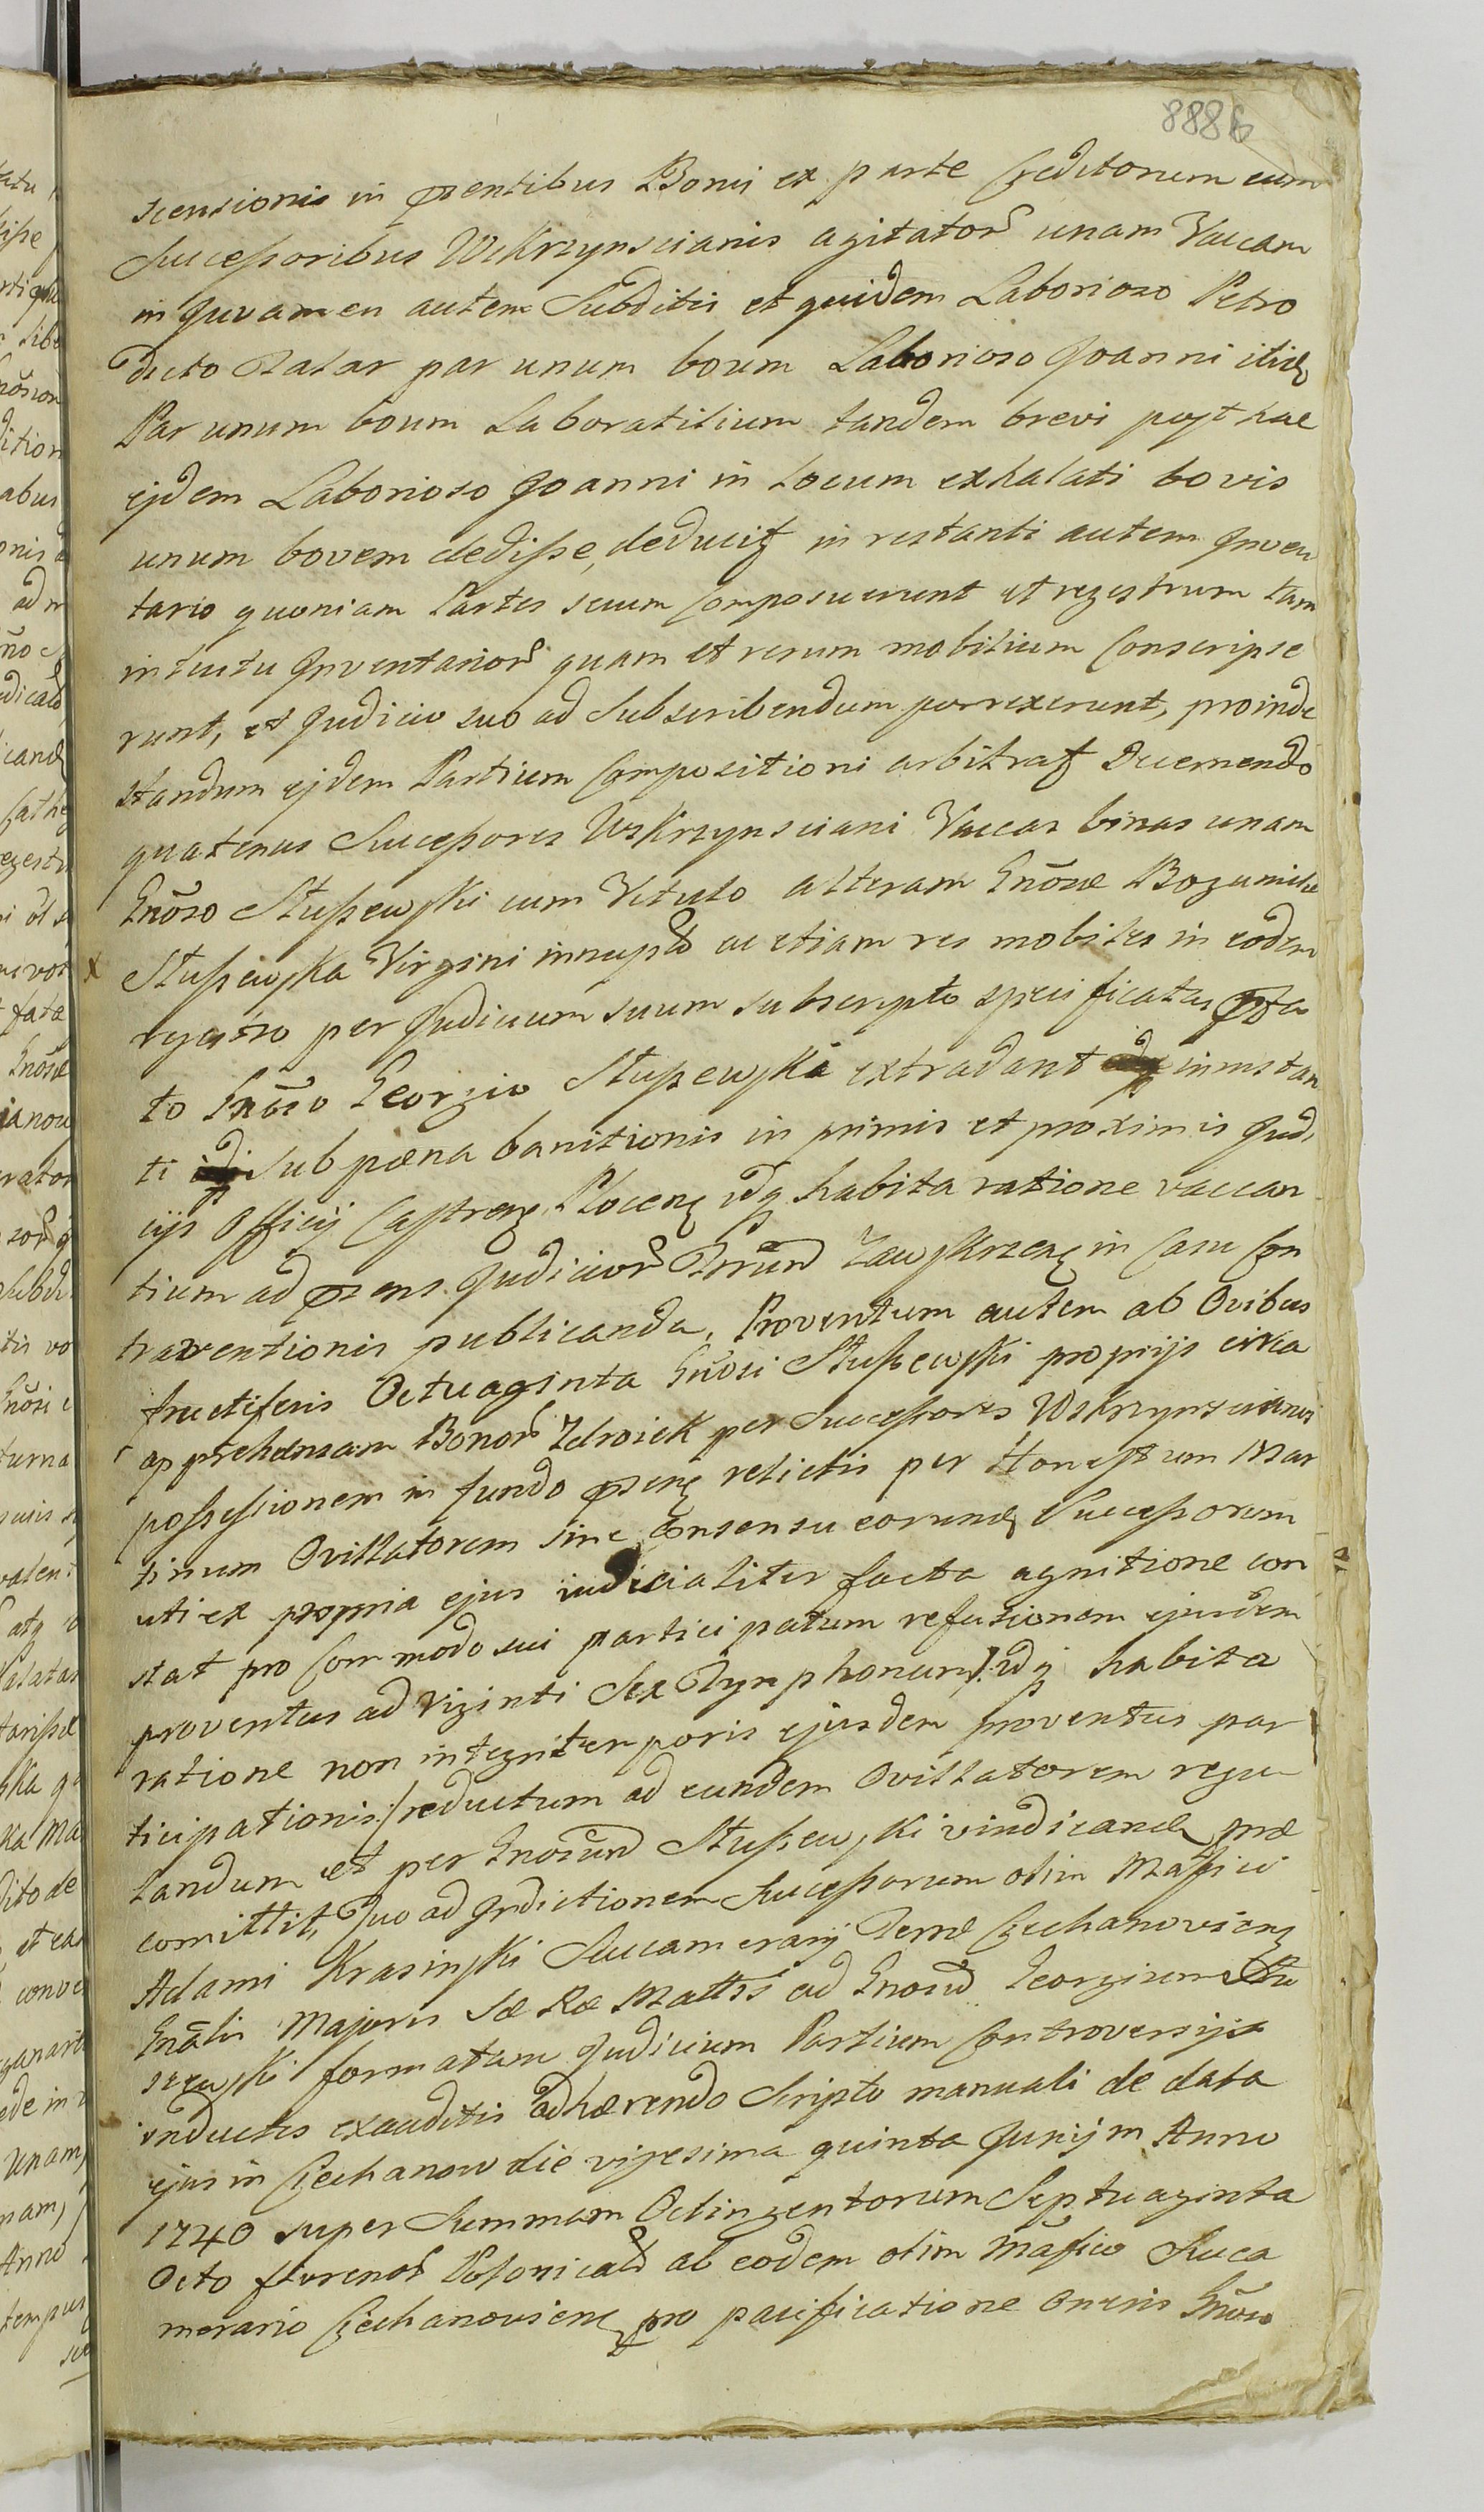 888b
scensionis in pzentibus Bonis ex parte Creditorum cum
Successoribus Wskrzynscianis agitator unam Vaccam
in Juvamen autem Subditis et quidem Laborioso Petro
dicto Tatar par unum boum Laborioso Joanni itidę
Par unum boum Laboratilium tandem brevi post hac
ejdem Laborioso Joanni in Locum exhalati bovis
unum bovem dedisse, deducitz in restanti autem Inven
tario quoniam Partes secum Composuerunt et regestrum tam
intuitu Inventarior quam et rerum mobilium Conscripse
runt, et Judicio suo ad Subscribendum porrexerunt, proinde
Standum ejdem Partium Compositioni arbitratz Decernendo
quatenus Successores Wskrzynsciani Vaccas binas unam
Gnoso Stuszewski cum Vitulo alteram Gnosae Bogumilae
x Stuszewska Virgini innuptae ac etiam res mobiles in eodem
regestro per Judicium suum subscripto specificatas pfa
to Gnoso Georgio Stuszewski extradant in instan
ti Sub paena banitionis in primis et proximis Judi
cijs Officij Castrenę Plocenę idq habita ratione vaccan
tium ad pzens Judicior Terrar Zawskrzenę in Casu Con
traventionis publicanda. Proventum autem ab Ovibus
fructiferis Octuaginta Gnosi Stuszewski proprijs circa
apprehensam Bonor Zdroiek per Successores Wskrzynscianos
possessionem in fundo pzenę relictis per Honestum Mar
tinum Ovillatorem sine Consensu eorundę Successorum
uti ex propria ejus judicialiter facta agnitione con
stat pro Commodo sui participatum refusionem ejusdem
proventus ad Viginti Sex Tymphonum /: idq habita
ratione non integri temporis ejusdem proventus par
ticipationis :/ reductum ad eundem Ovillatorem regu
landum et per Gnosum Stuszewski vindicandę prae
comittit, Quo ad Indictionem Successorum olim Magfici
Adami Krasinski Succamerarij Terrae Ciechanoviens
Gnalis Majoris Sae Rae Mattis ad Gnosum Georgium Stu
szewski formatam Judicium Partium Controversijs
inductis exauditis adhaerendo Scripto manuali de data
ejus in Ciechanow die vigesima quinta Junij in Anno
1740 super Summam Octingentorum Septuaginta
Octo florenor Polonicalium ab eodem olim Magfico Succa
merario Ciechanoviens pro pacificatione oneris Gnoso